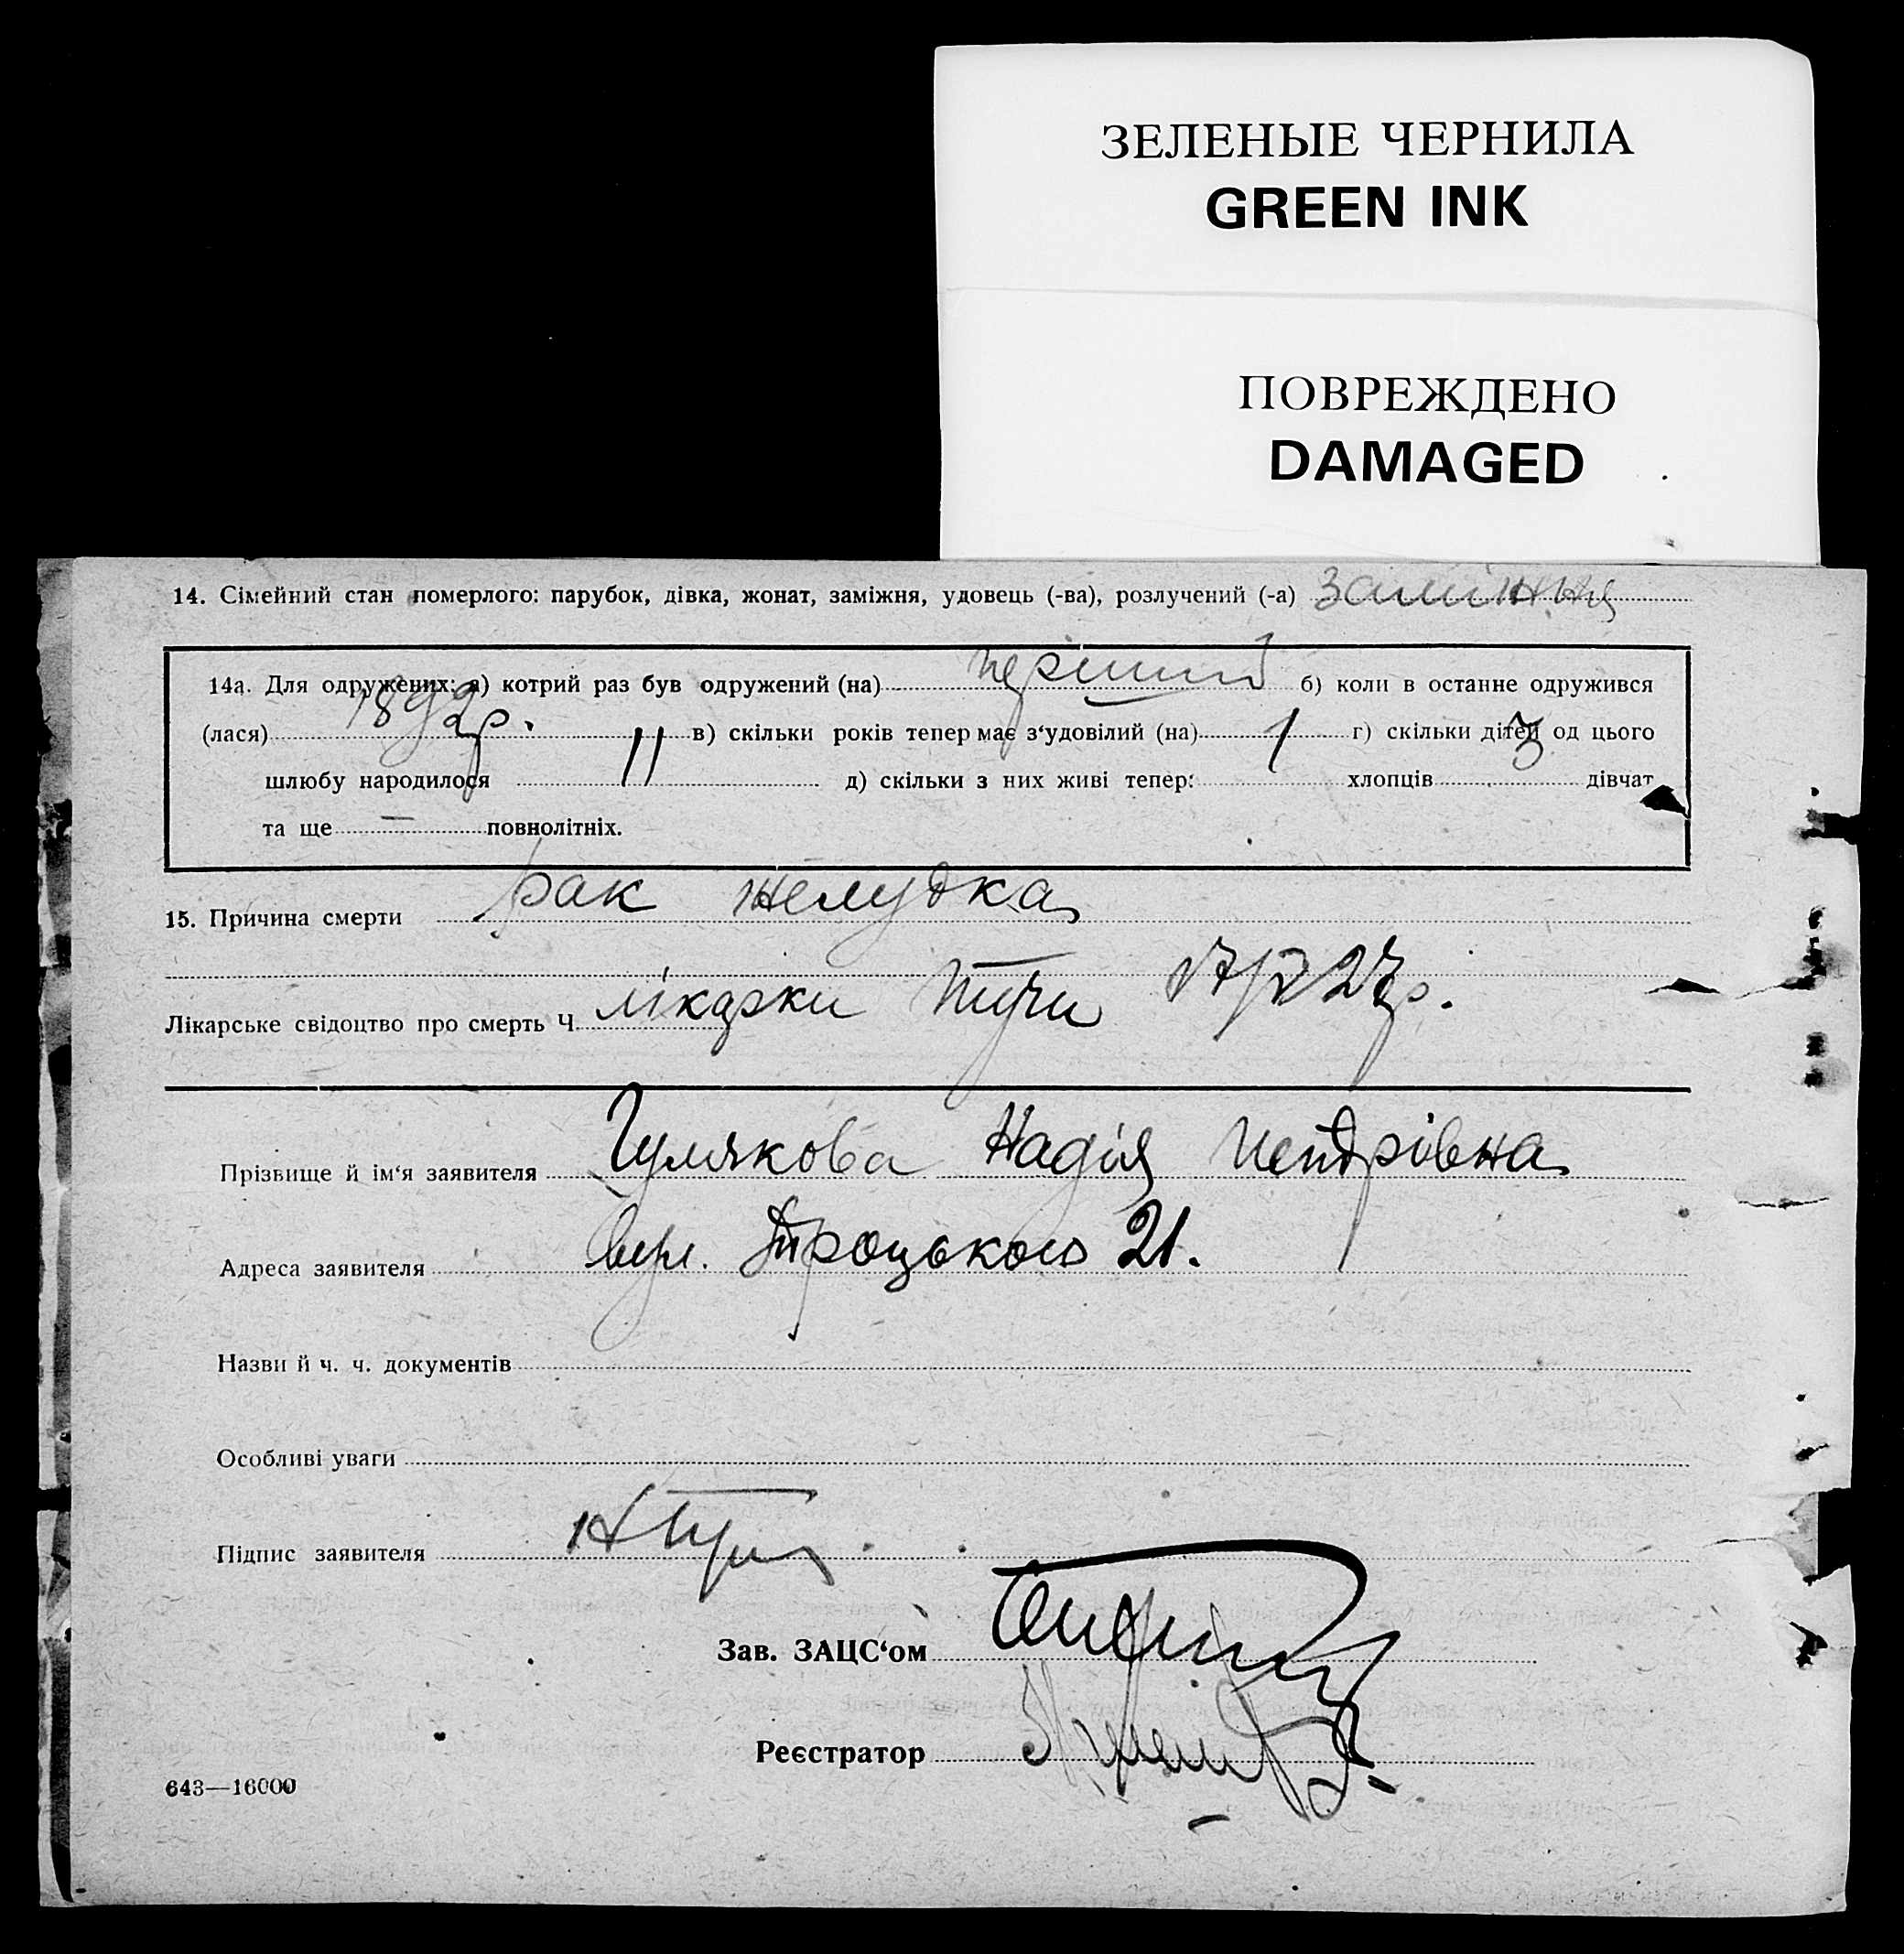 ЗЕЛЕНЫЕ ЧЕРНИЛА
GREEN INK
ПОВРЕЖДЕНО
DAMAGED
14. Сімейний стан померлого: парубок, дівка, жонат, заміжня, удовець (-ва), розлучений (-а) заміжня
14а. Для одружених: а) котрий раз був одружений (на) перший б) коли в останне одружився
(лася) 1892р. в) скільки років тепер має з‘удовілий (на) г) скільки дітей од цього
шлюбу народилося 11 д) скільки з них живі тепер: 1 хлопців 3 дівчат
та ще — повнолітніх.
15. Причина смерти рак желудка
Лікарське свідоцтво про смерть Ч. лікарки 27р.
Прізвище й ім‘я заявителя Гулякова Надія Петрівна
Адреса заявителя вул. Троцького 21.
Назви й ч. ч. документів
Особливі уваги
Підпис заявителя
Зав. ЗАЦС‘ом
Реєстратор
643—16000